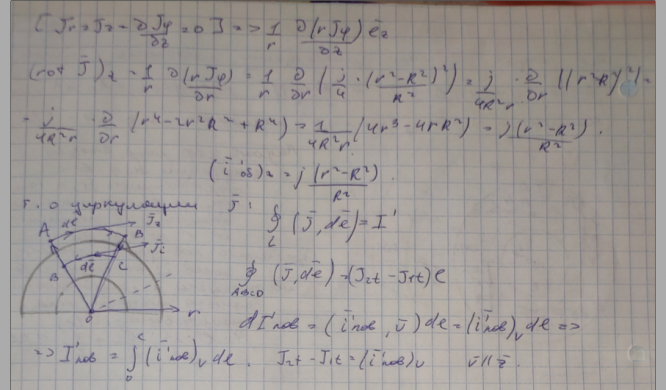 [ Jr = Jz = ∂Jφ/∂z = 0 ] => 1/r ∂(rJφ)/∂z ēz
(rot J̄)z = 1/r ∂(rJφ)/∂r = 1/r ∂/∂r ( j/4 · (r²-R²)²/R² ) = j/4R²r · ∂/∂r ((r²-R²)²) =
= j/4R²r · ∂/∂r (r⁴ - 2r²R² + R⁴) = 1/4R²r (4r³ - 4rR²) = j (r²-R²)/R² .
(ī'об)z = j (r²-R²)/R² .
Т. о циркуляции J̄ :
∮L (J̄, dē) = I'
A dē J̄2 B J̄1
B dē C
O r
∮ABCD (J̄, dē) = (J2t - J1t) e
dI'пов = (ī'пов, ν̄) de = (ī'пов)ν de =>
=> I'пов = ∫0e (ī'пов)ν de . J2t - J1t = (ī'пов)ν ν̄ || z̄ .